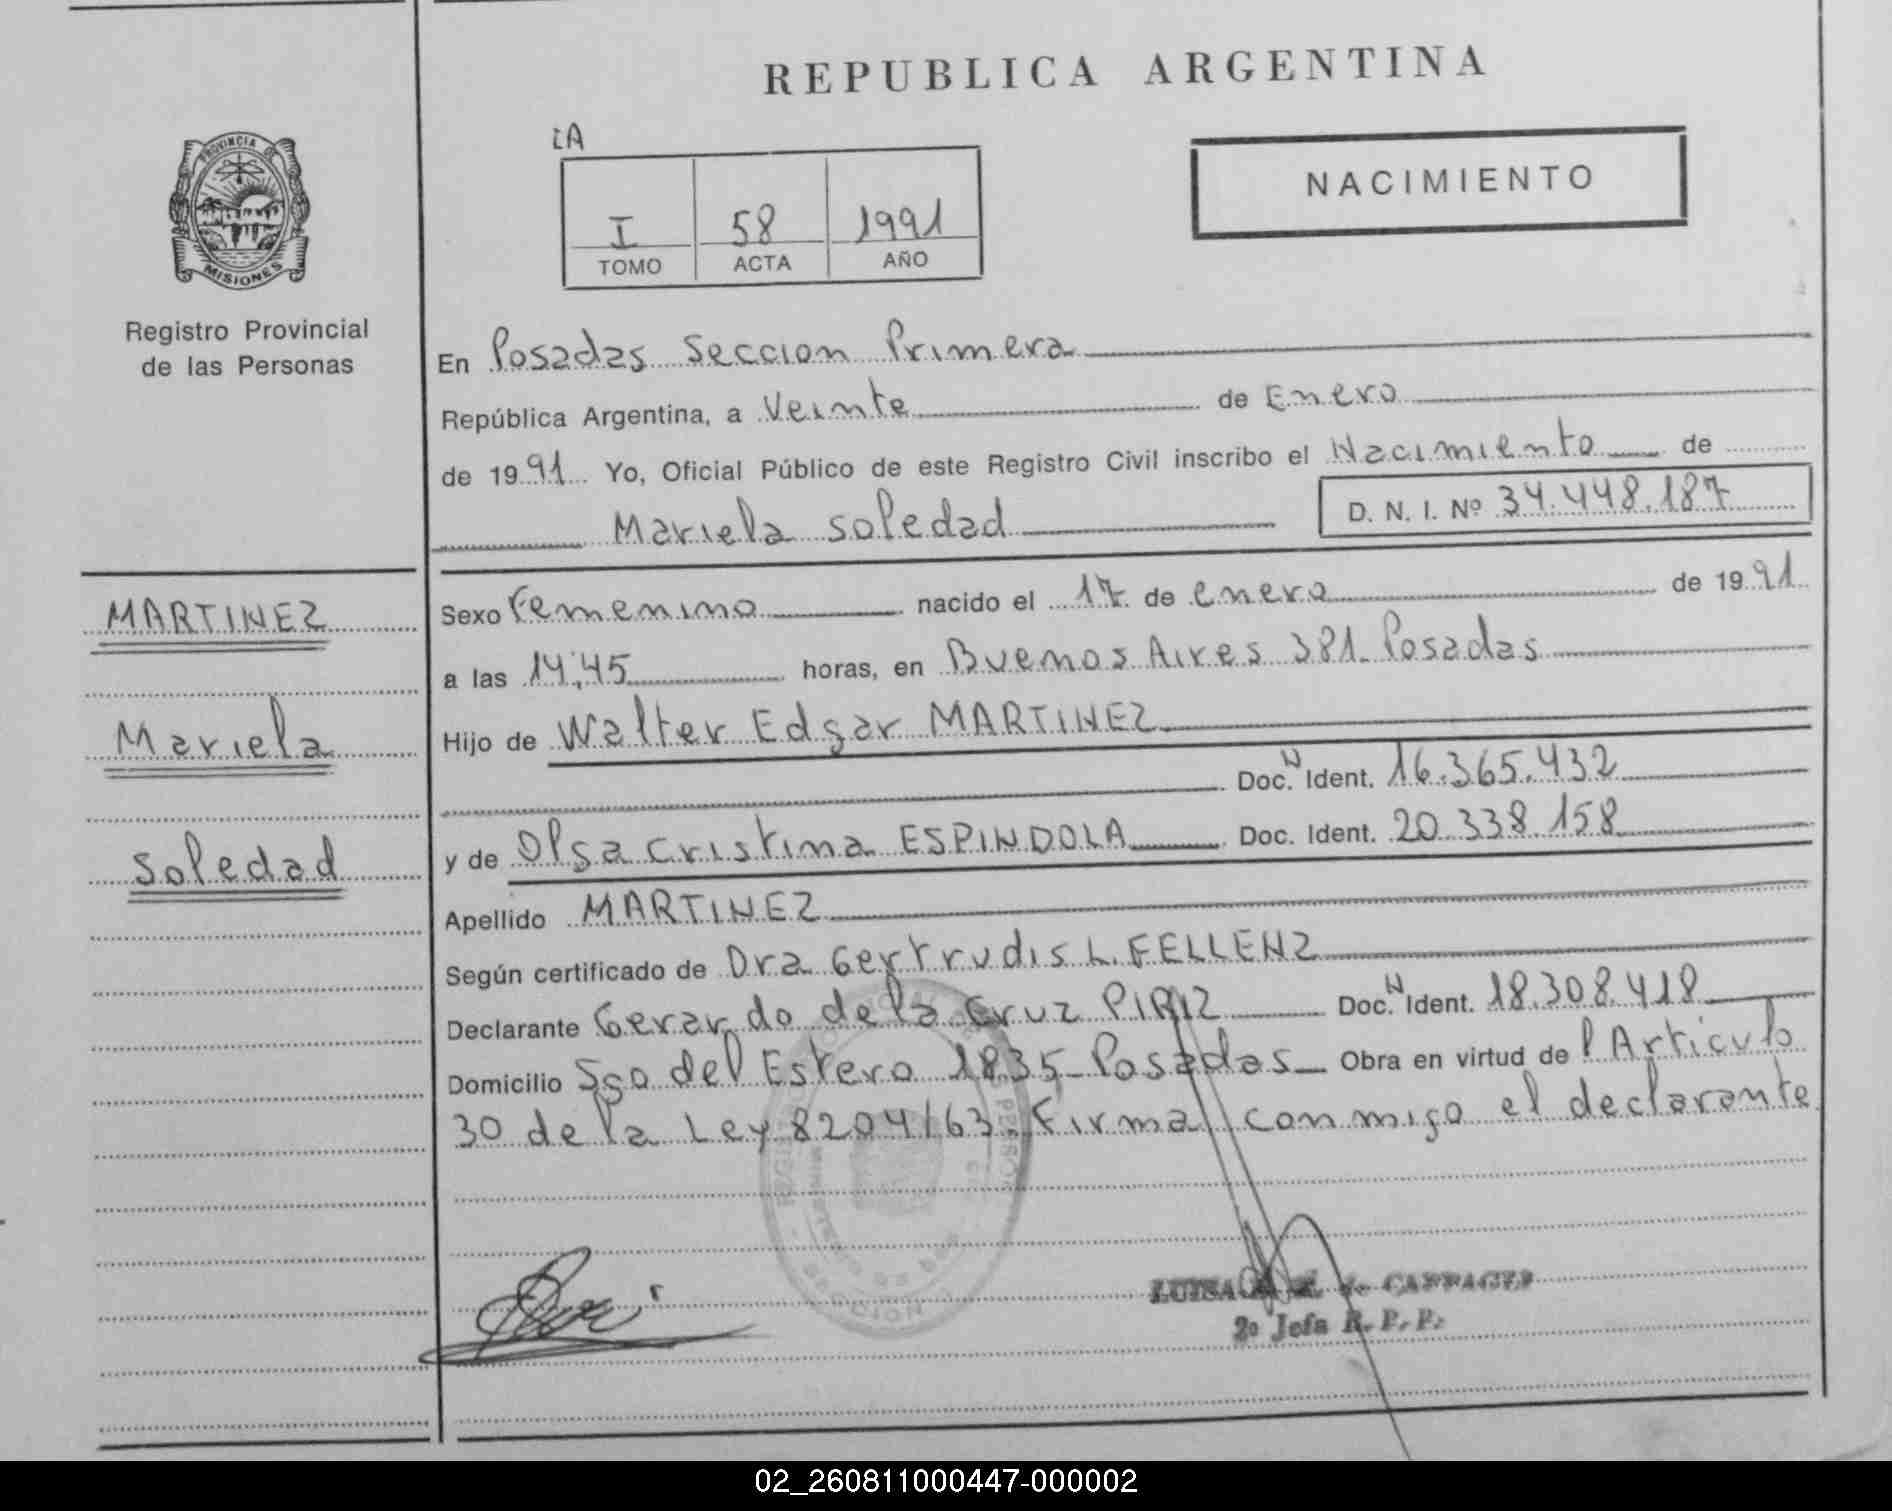 REPUBLICA ARGENTINA
PROVINCIA DE
MISIONES
Registro Provincial
de las Personas
IA
I 58 1991
TOMO ACTA AÑO
NACIMIENTO
En Posadas Seccion Primera
República Argentina, a Veinte de Enero
de 1991 Yo, Oficial Público de este Registro Civil inscribo el Nacimiento de
Mariela Soledad D. N. I. Nº 34.448.187
MARTINEZ
Mariela
Soledad
Sexo Femenino nacido el 17 de enero de 1991
a las 14,45 horas, en Buenos Aires 381 - Posadas
Hijo de Walter Edgar MARTINEZ
Doc. N Ident. 16.365.432
y de Olga Cristina ESPINDOLA Doc. Ident. 20.338.158
Apellido MARTINEZ
Según certificado de Dra Gertrudis L. FELLENZ
Declarante Gerardo de la Cruz PIRIZ Doc. N Ident. 18.308.418
Domicilio Sgo del Estero 1835 - Posadas - Obra en virtud de l Articulo
30 de la Ley 8204/63. Firma conmigo el declarante
LUISA
2º Jefa R. P. P.
02_260811000447-000002